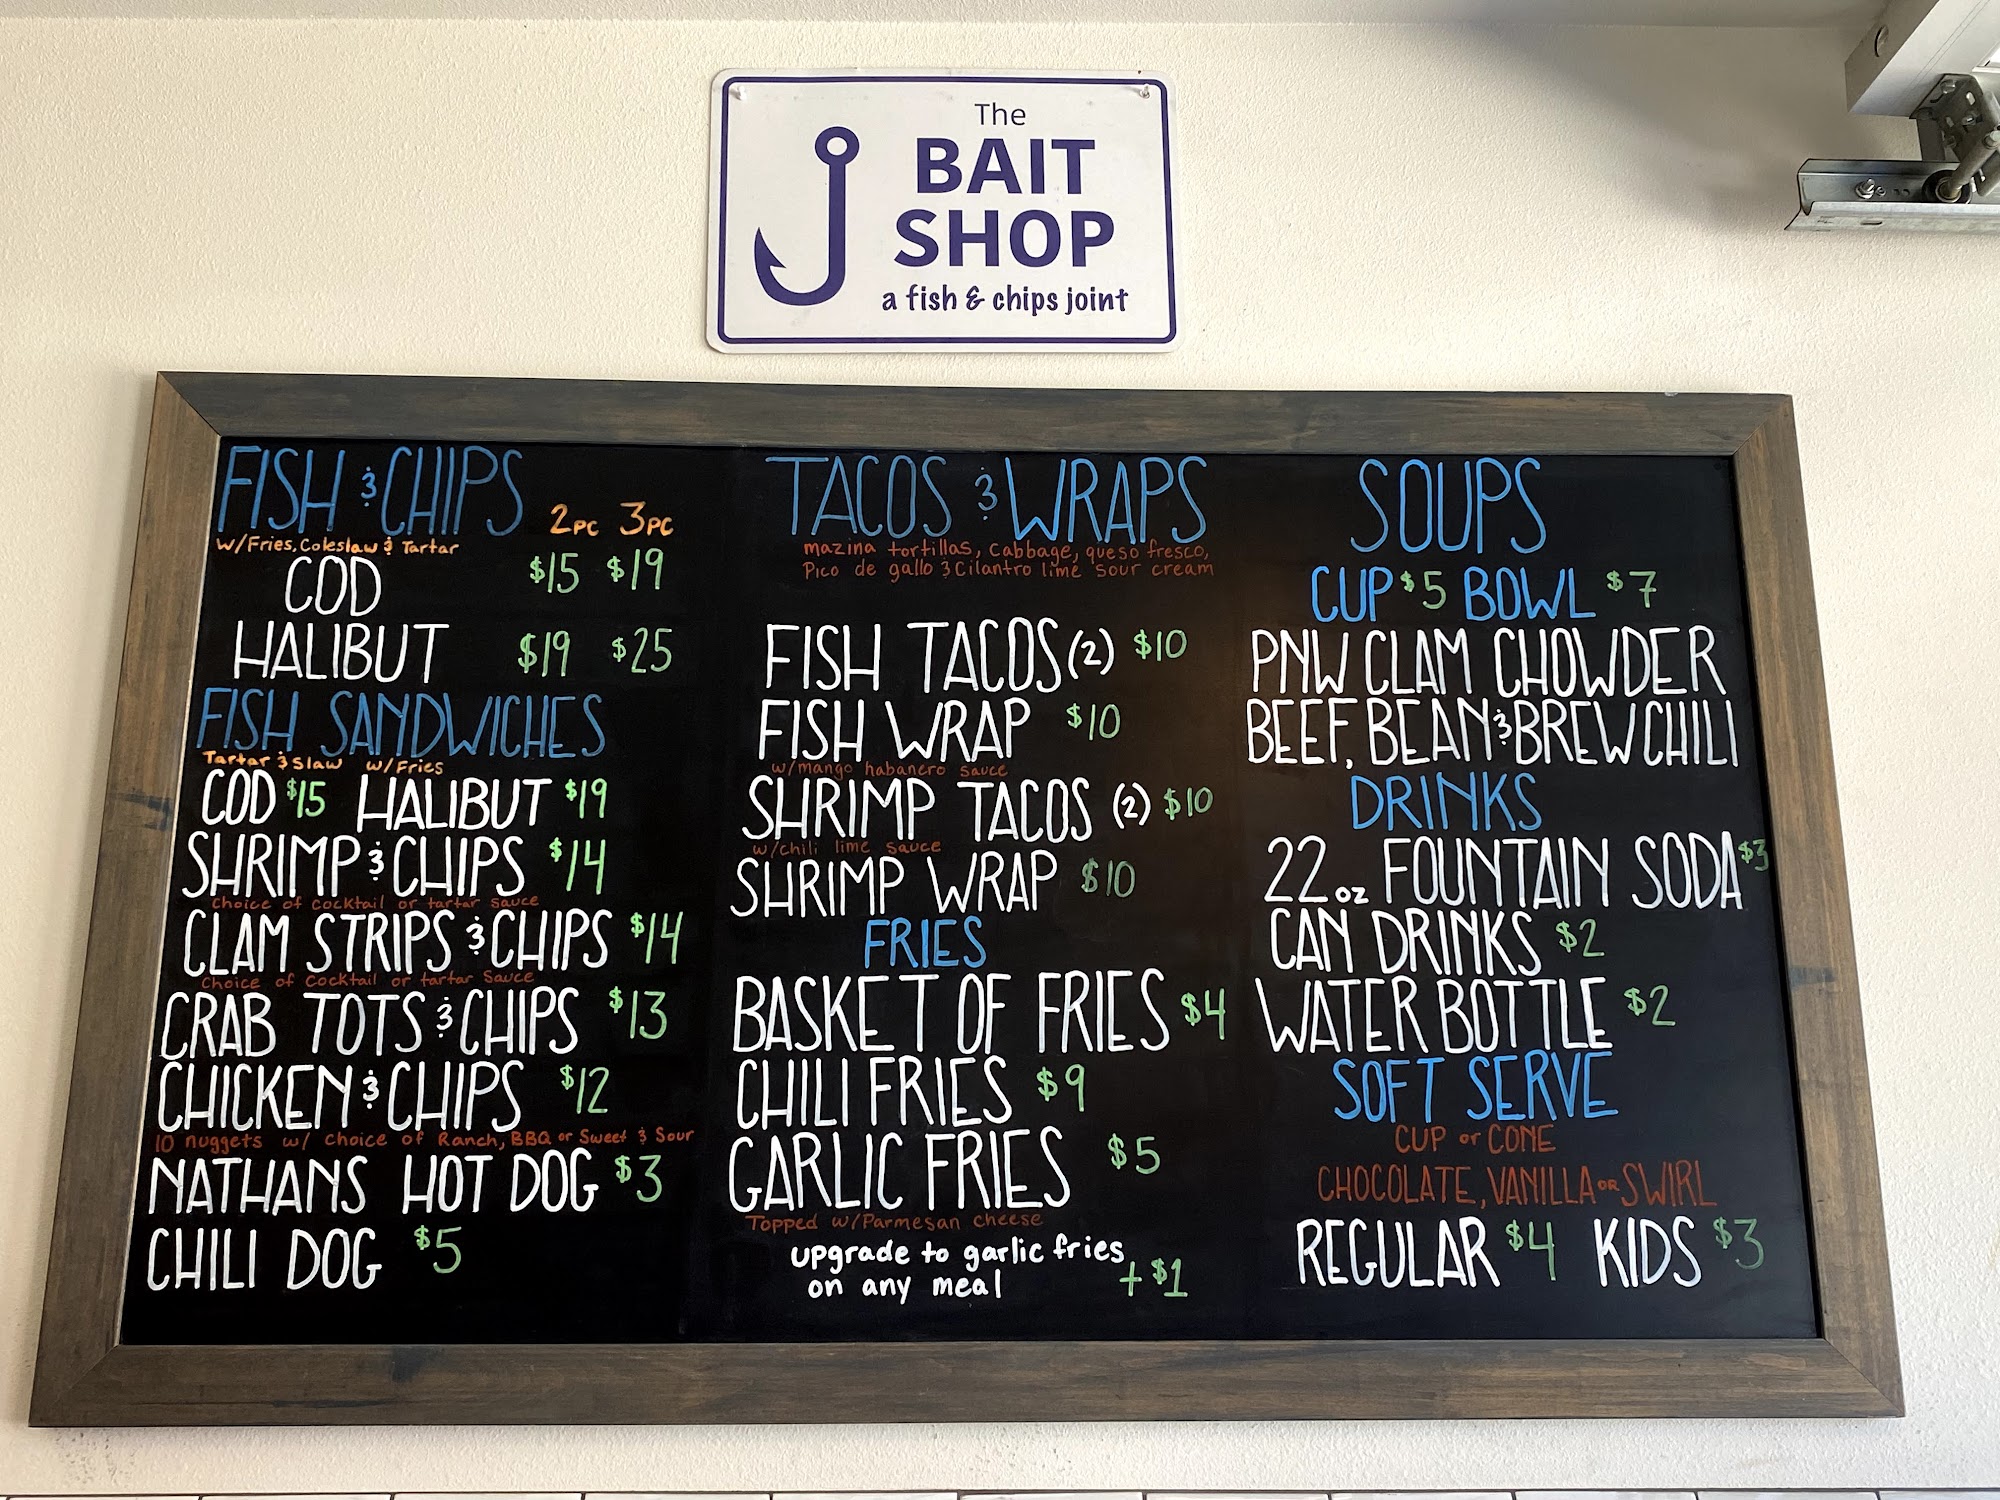 The
BAIT
SHOP
a fish & chips joint
FISH & CHIPS 2PC 3PC
w/Fries, Coleslaw & Tartar
COD $15 $19
HALIBUT $19 $25
FISH SANDWICHES
Tartar & Slaw w/Fries
COD $15 HALIBUT $19
SHRIMP & CHIPS $14
Choice of cocktail or tartar sauce
CLAM STRIPS & CHIPS $14
Choice of cocktail or tartar sauce
CRAB TOTS & CHIPS $13
CHICKEN & CHIPS $12
10 nuggets w/ choice of Ranch, BBQ or Sweet & Sour
NATHANS HOT DOG $3
CHILI DOG $5
TACOS & WRAPS
mazina tortillas, Cabbage, queso fresco,
Pico de gallo & Cilantro lime sour cream
FISH TACOS (2) $10
FISH WRAP $10
w/mango habanero sauce
SHRIMP TACOS (2) $10
w/chili lime sauce
SHRIMP WRAP $10
FRIES
BASKET OF FRIES $4
CHILI FRIES $9
GARLIC FRIES $5
Topped w/Parmesan cheese
upgrade to garlic fries
on any meal +$1
SOUPS
CUP $5 BOWL $7
PNW CLAM CHOWDER
BEEF, BEAN & BREW CHILI
DRINKS
22oz FOUNTAIN SODA $3
CAN DRINKS $2
WATER BOTTLE $2
SOFT SERVE
CUP or CONE
CHOCOLATE, VANILLA OR SWIRL
REGULAR $4 KIDS $3